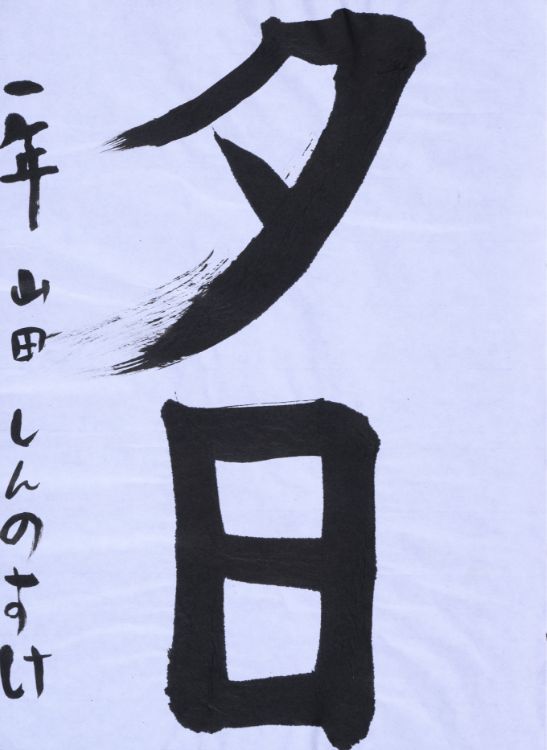 夕日
一年 山田 しんのすけ